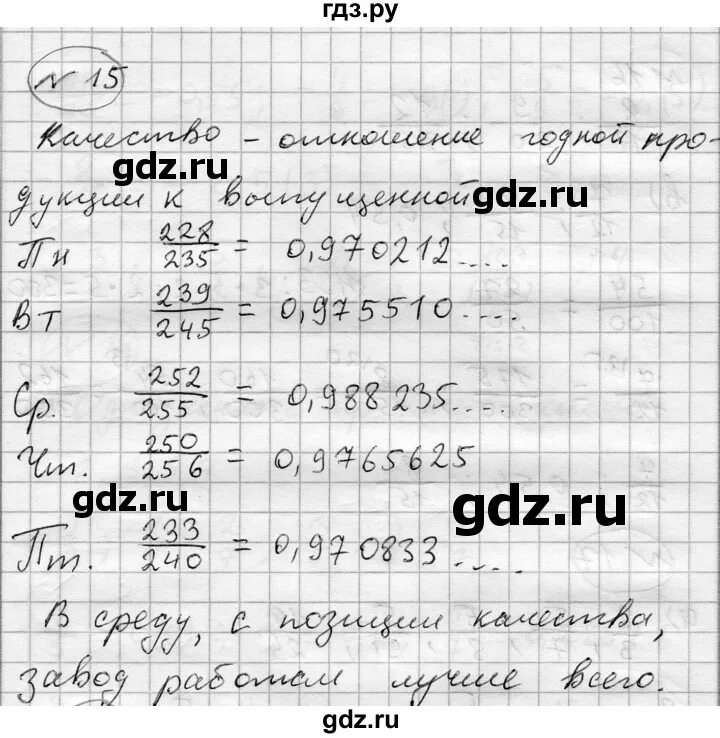 гдз.ру
№ 15
Качество – отношение годной про-
gdz.ru
дукции к выпущенной
gdz.ru
Пн 228/235 = 0,970212....
Вт 239/245 = 0,975510....
Ср. 252/255 = 0,988235....
Чт. 250/256 = 0,9765625
gdz.ru
gdz.ru
Пт. 233/240 = 0,970833....
В среду, с позиции качества,
завод работал лучше всего.
gdz.ru